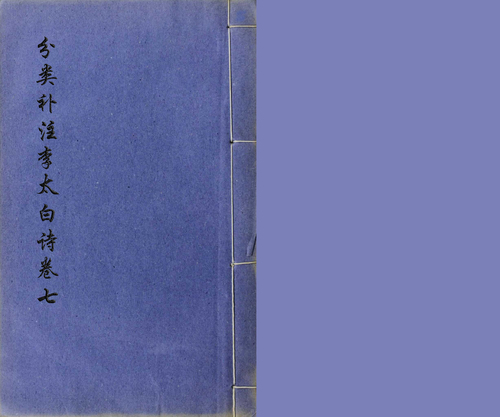 分类补注李太白诗卷七